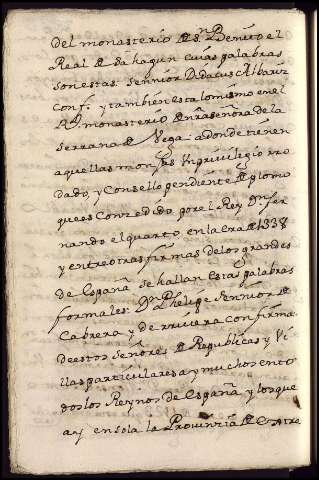 del monasterio de sn. Benito el
Real de Sahagun cuias palabras
son estas. Sennior Didacus Albariz
Conf. y tambien esta lo mismo en el
Rl. monasterio de nra señora de la
Serrana de Vega: adonde tienen
aquellas monjas un privilegio rro
dado, y con sello pendiente de plomo
que es concedido por el Rey Dn. fer
nando el quarto, en la era de 1338
y entre otras firmas de los grandes
de España se hallan estas palabras
formales: Dn. Phelipe Sennior de
Cabrera y de rrivera confirma.
De estos señores de Republicas y Vi
llas particulares ay muchos en to
dos los Reynos de España, y los que
ay en sola la Provinzia de Entre